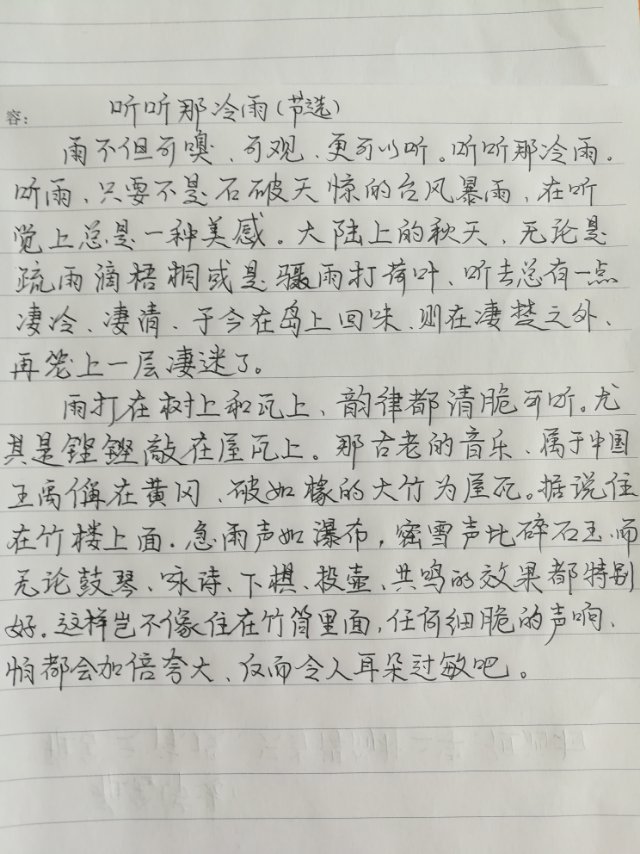 容:
听听那冷雨(节选)
雨不但可嗅、可观、更可以听。听听那冷雨。
听雨,只要不是石破天惊的台风暴雨,在听
觉上总是一种美感。大陆上的秋天、无论是
疏雨滴梧桐或是骤雨打荷叶、听去总有一点
凄冷、凄清、于今在岛上回味、则在凄楚之外、
再笼上一层凄迷了。
雨打在树上和瓦上、韵律都清脆可听。尤
其是铿铿敲在屋瓦上。那古老的音乐、属于中国
王禹偁在黄冈、破如椽的大竹为屋瓦。据说住
在竹楼上面。急雨声如瀑布,密雪声比碎石玉、而
无论鼓琴、咏诗、下棋、投壶、共鸣的效果都特别
好。这样岂不像住在竹筒里面,任何细脆的声响、
怕都会加倍夸大、反而令人耳朵过敏吧。